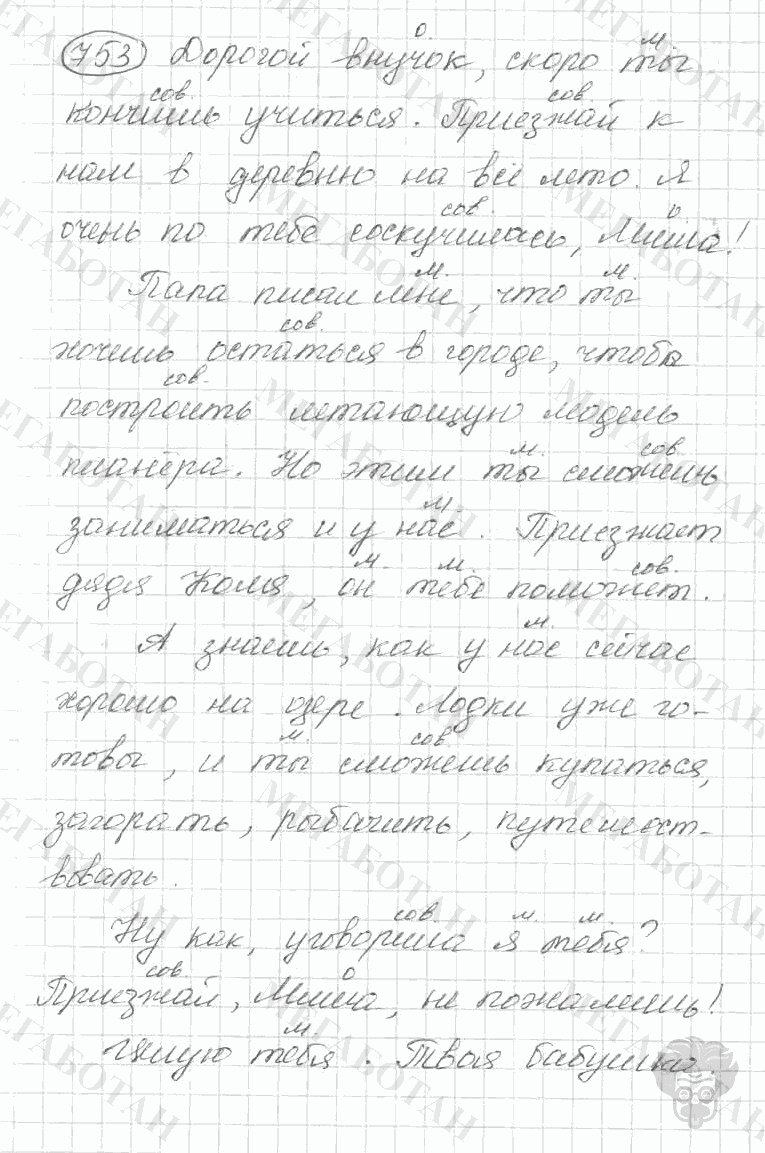 753 Дорогой внучок, скоро ты
кончишь учиться. Приезжай к
нам в деревню на всё лето. Я
очень по тебе соскучилась, Миша!
Папа писал мне, что ты
хочешь остаться в городе, чтобы
построить летающую модель
планёра. Но этим ты сможешь
заниматься и у нас. Приезжает
дядя Коля, он тебе поможет.
А знаешь, как у нас сейчас
хорошо на озере. Лодки уже го-
товы, и ты сможешь купаться,
загорать, рыбачить, путешест-
вовать.
Ну как, уговорила я тебя?
Приезжай, Миша, не пожалеешь!
Целую тебя. Твоя бабушка.